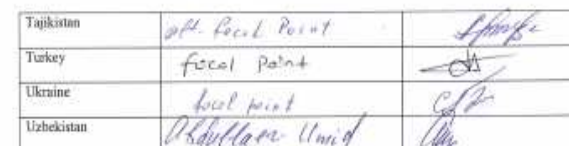 Tajikistan alt. focal Point
Turkey focal point
Ukraine focal point
Uzbekistan Abdullaev Umid